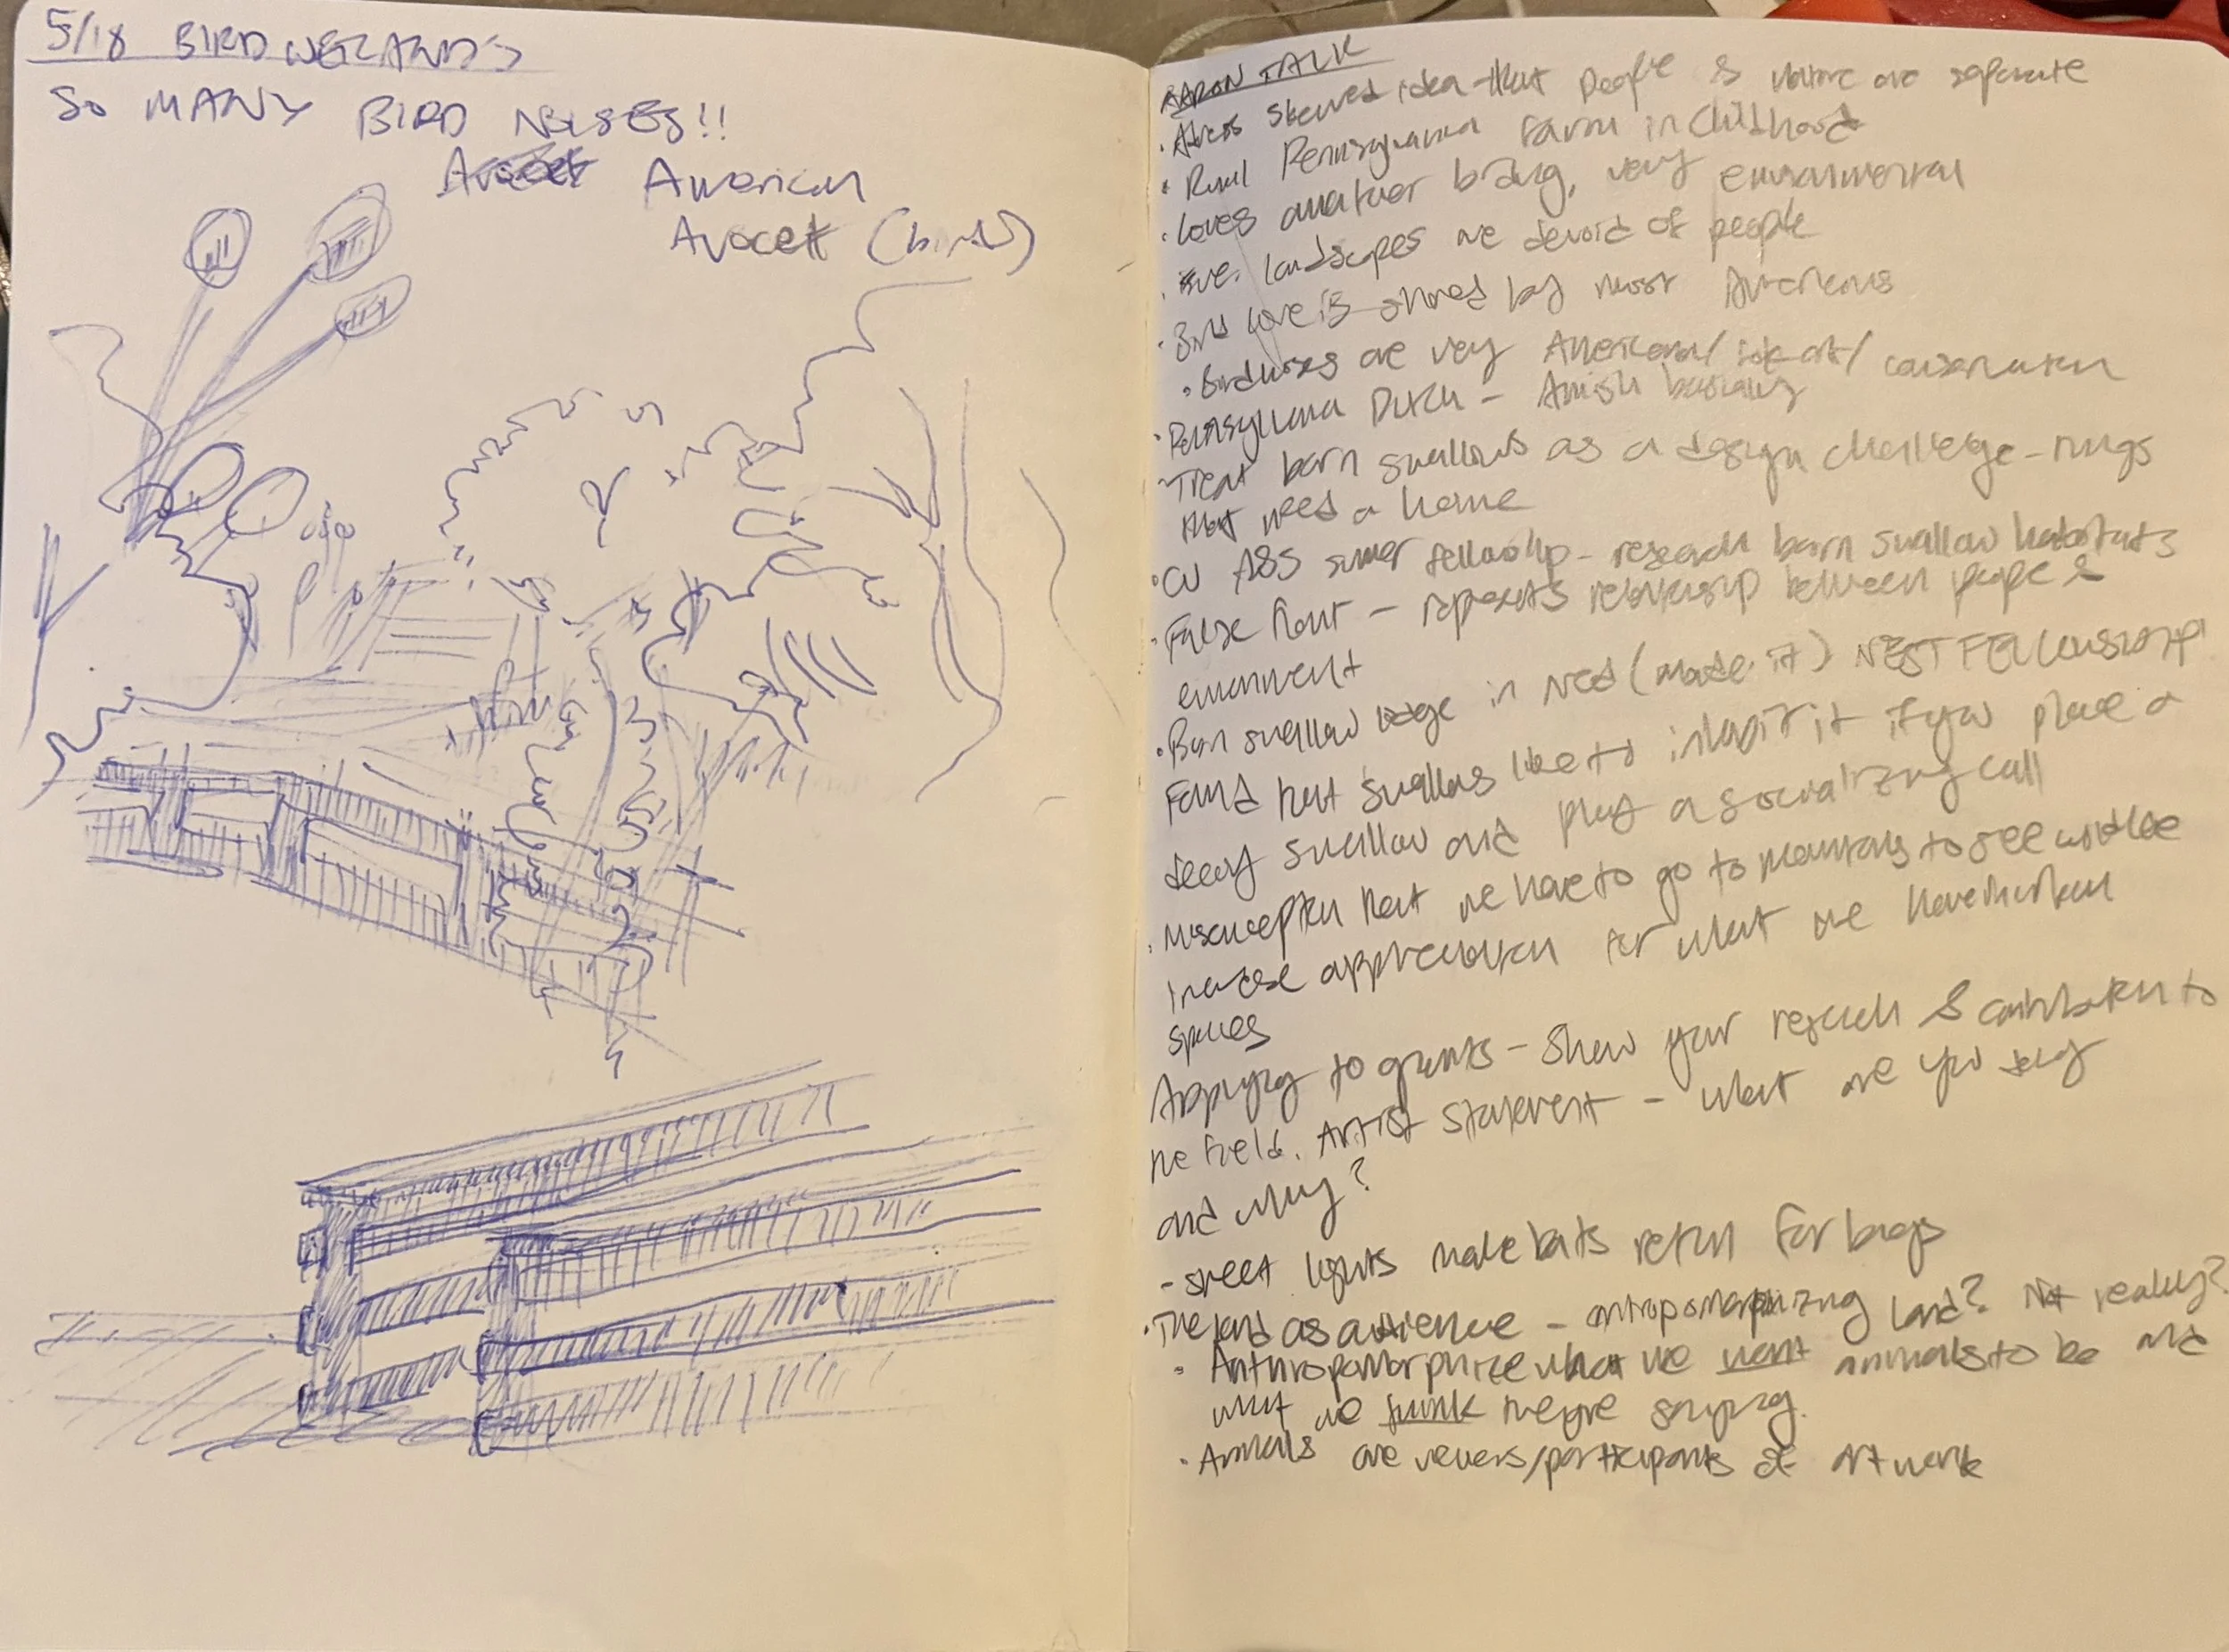 5/18 BIRD WETLANDS
SO MANY BIRD NOISES!!
Avocet American
Avocet (bird)
AARON TALK
• skewed idea that people & nature are separate
• Rural Pennsylvania farm in childhood
• Loves amatuer birding, very environmental
• landscapes are devoid of people
• Bird love is shared by most Americans
• Birdhouses are very Americana/ folk art/ conservation
• Pennsylvania Dutch - Amish basically
• Treat barn swallows as a design challenge - things
that need a home
• CU ASS summer fellowship - research barn swallow habitats
• False front - represents relationship between people &
environment
• Barn swallow in Ned (made it) NEST FELLOWSHIP
Found that swallows like to inhabit it if you place a
decoy swallow and play a socializing call
• Misconception that we have to go to mountains to see wildlife
Increase appreciation for what we have in urban
spaces
Applying to grants - Show your research & contribution to
the field. Artist statement - what are you doing
and why?
- street lights make bats return for bugs
• The land as audience - antropomorphizing land? Not really?
• Anthropomorphize what we want animals to be and
what we think they're saying.
• Animals are viewers/participants of artwork